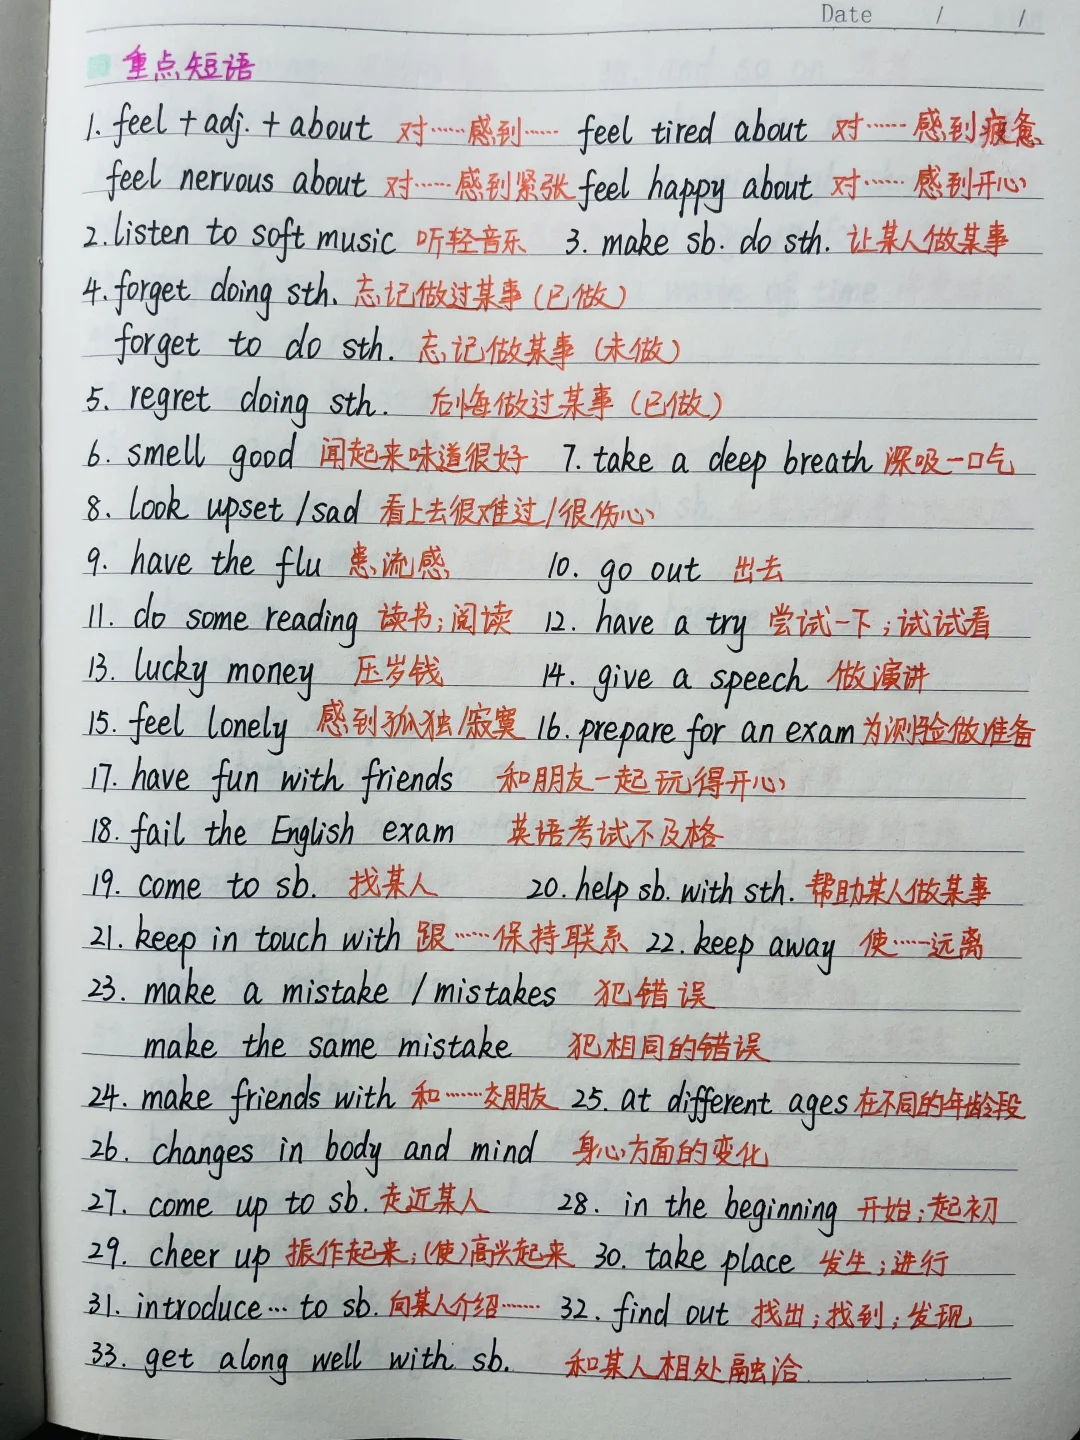 Date / /
重点短语
1. feel + adj. + about 对……感到…… feel tired about 对……感到疲惫
feel nervous about 对……感到紧张 feel happy about 对……感到开心
2. listen to soft music 听轻音乐 3. make sb. do sth. 让某人做某事
4. forget doing sth. 忘记做过某事(已做)
forget to do sth. 忘记做某事(未做)
5. regret doing sth. 后悔做过某事(已做)
6. smell good 闻起来味道很好 7. take a deep breath 深吸一口气
8. look upset / sad 看上去很难过/很伤心
9. have the flu 患流感 10. go out 出去
11. do some reading 读书;阅读 12. have a try 尝试一下;试试看
13. lucky money 压岁钱 14. give a speech 做演讲
15. feel lonely 感到孤独/寂寞 16. prepare for an exam 为测验做准备
17. have fun with friends 和朋友一起玩得开心
18. fail the English exam 英语考试不及格
19. come to sb. 找某人 20. help sb. with sth. 帮助某人做某事
21. keep in touch with 跟……保持联系 22. keep away 使……远离
23. make a mistake / mistakes 犯错误
make the same mistake 犯相同的错误
24. make friends with 和……交朋友 25. at different ages 在不同的年龄段
26. changes in body and mind 身心方面的变化
27. come up to sb. 走近某人 28. in the beginning 开始;起初
29. cheer up 振作起来;(使)高兴起来 30. take place 发生;进行
31. introduce… to sb. 向某人介绍…… 32. find out 找出;找到;发现
33. get along well with sb. 和某人相处融洽